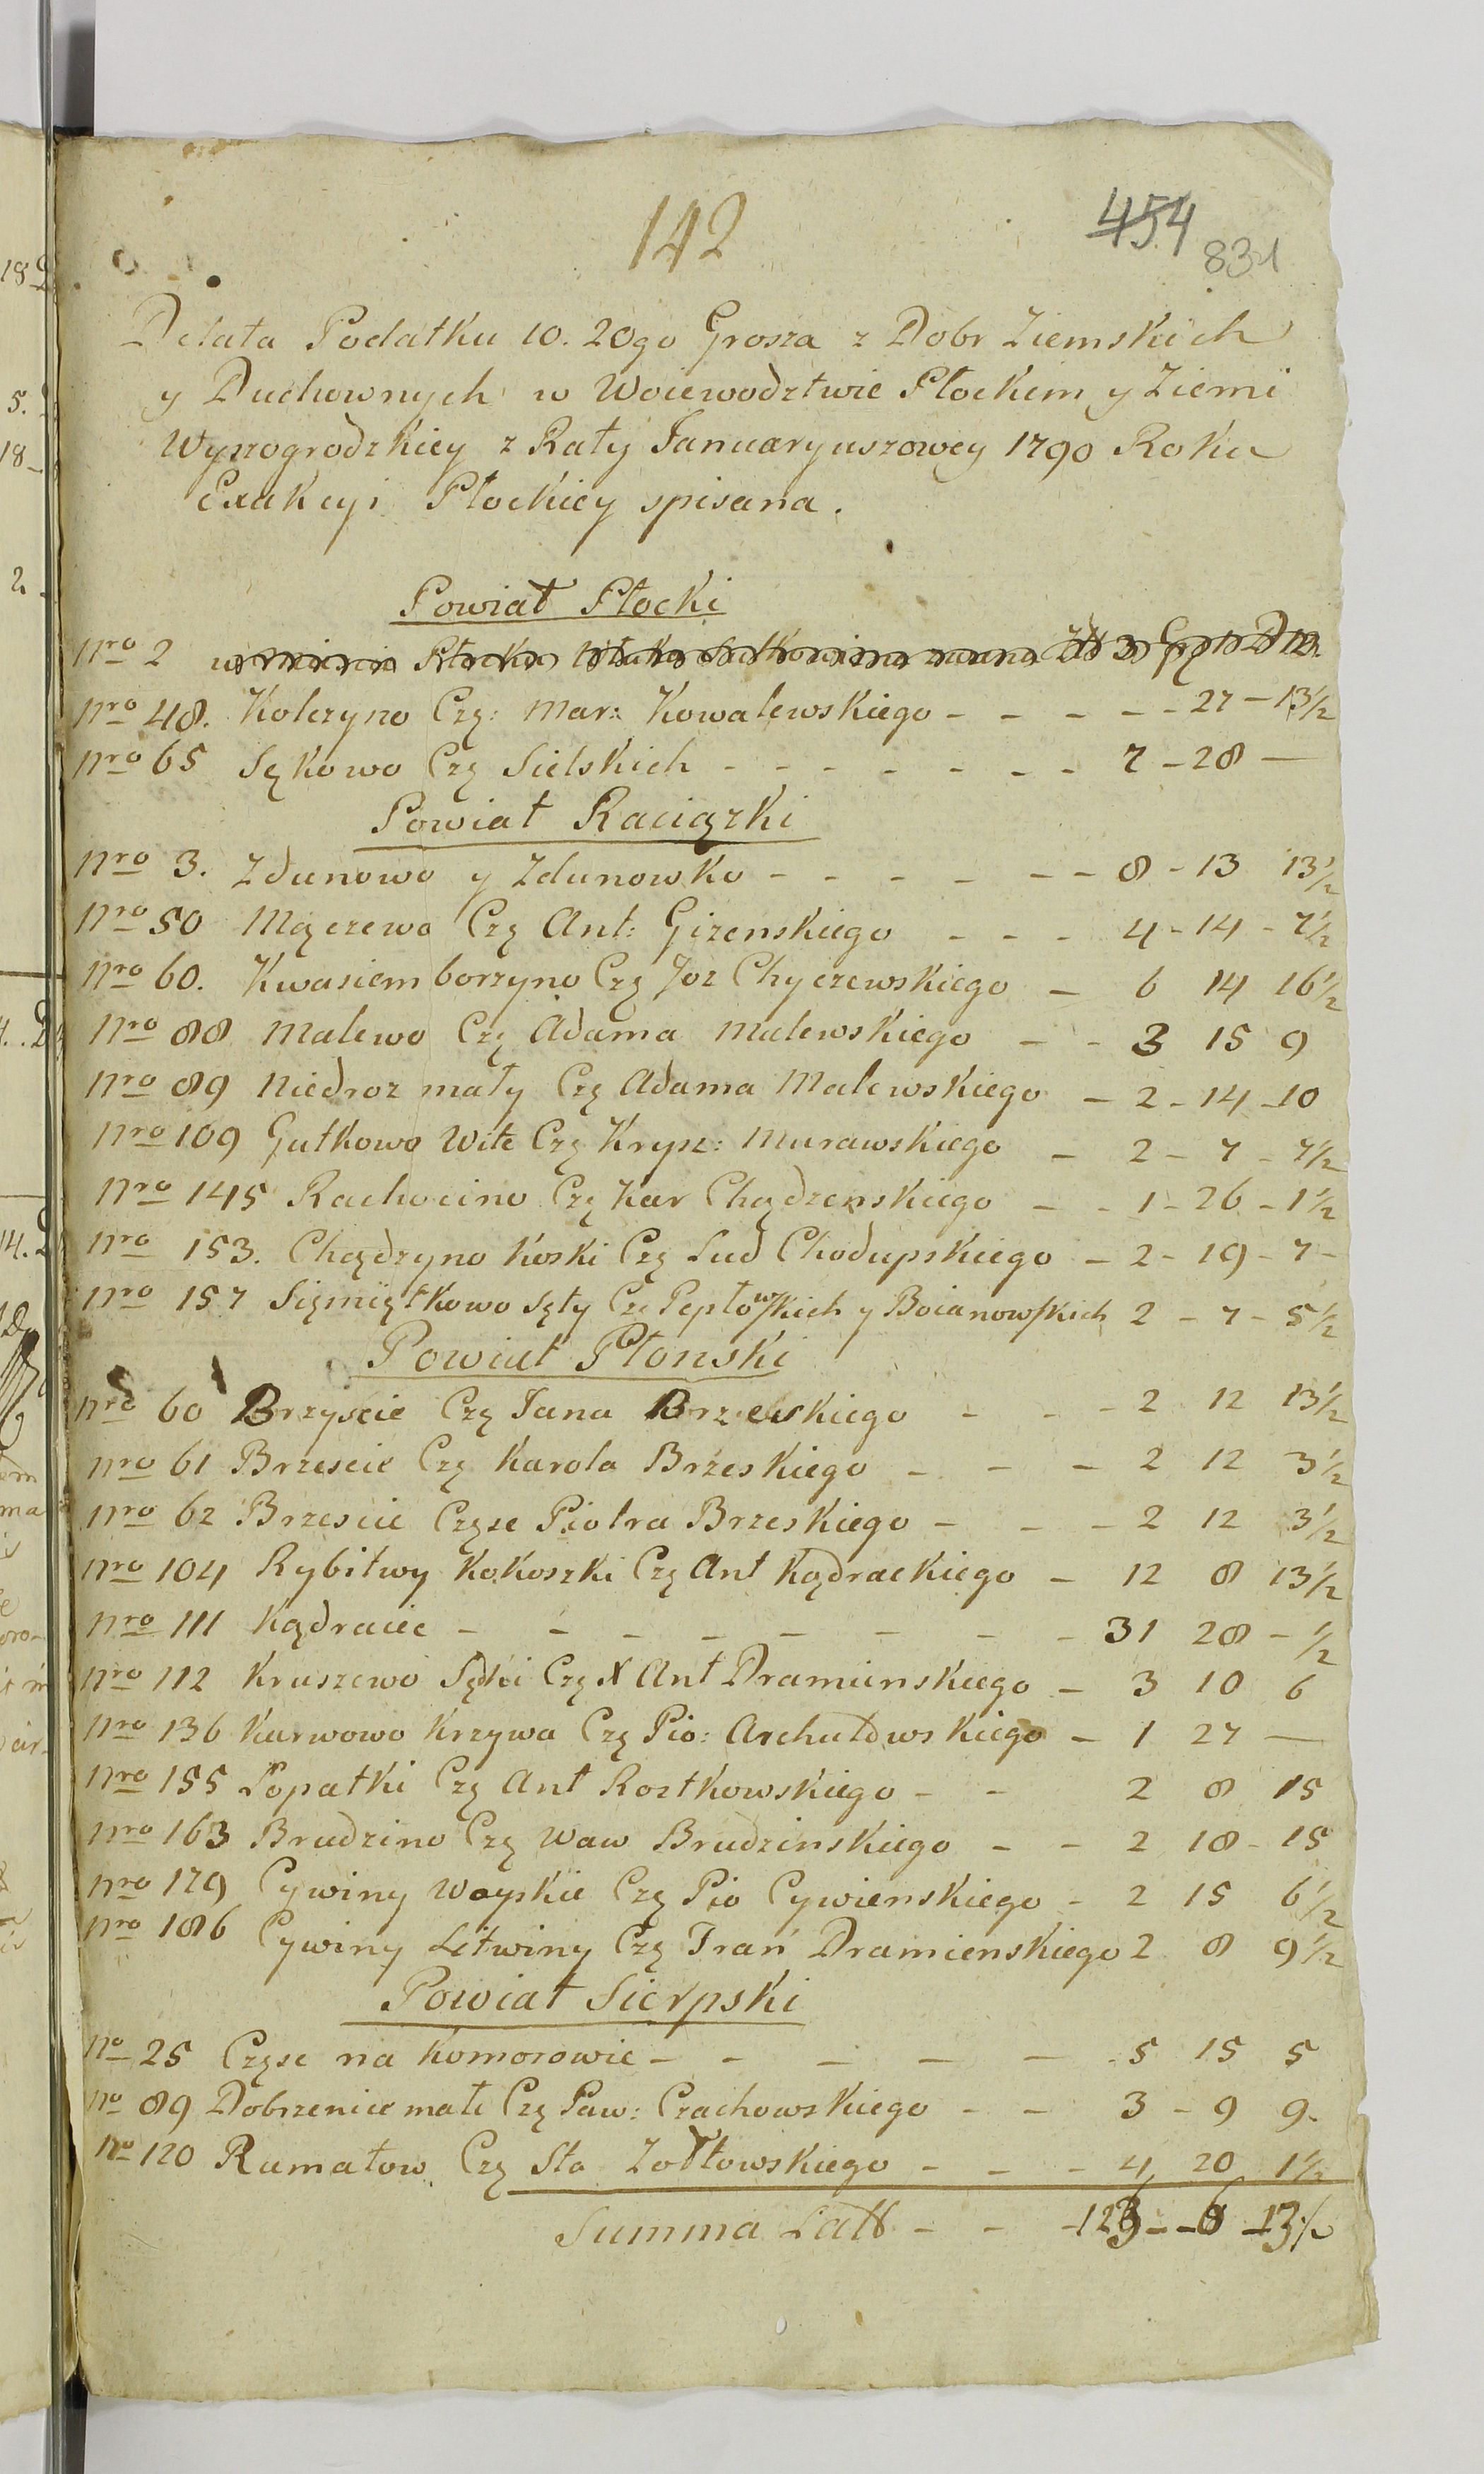 142
454
831
Delata Podatku 10. 20go Grosza z Dobr Ziemskich
y Duchownych w Woiewodztwie Płockim y Ziemi
Wyszogrodzkiey z Raty Januaryuszowey 1790 Roku
Exakcyi Płockiey spisana.
Powiat Płocki
Nro 2
Nro 48. Kolczyno Czę: Mar: Kowalewskiego - - - - - 27 - 13½
Nro 65 Sękowo Czę Sielskich - - - - - - - - 7 - 28 -
Powiat Raciązki
Nro 3. Zdunowo y Zdunowko - - - - - - 8 - 13 13½
Nro 50 Mączewo Czę Ant: Gizenskiego - - - 4 - 14 - 7½
Nro 60. Kwasiemborzyno Czę Joz Chyczewskiego - 6 14 16½
Nro 88 Malewo Czę Adama Malewskiego - - 3 15 9
Nro 89 Niedroz mały Czę Adama Malewskiego - 2 - 14 - 10
Nro 109 Gutkowo Wite Czę Krysz: Murawskiego - 2 - 7 - 7½
Nro 145 Rachocino Czę Kar Chądzenskiego - - 1 - 26 - 1½
Nro 153. Chądzyno Koski Czę Lud Chodupskiego - 2 - 19 - 7 -
Nro 157 Sięmiątkowo Sęty Czę Pepłowskich y Boianowskich 2 - 7 - 5½
Powiat Płonski
Nro 60 Brzyscie Czę Jana Brzeskiego - - - 2 12 13½
Nro 61 Brzescie Czę Karola Brzeskiego - - - 2 12 3½
Nro 62 Brzescie Częsc Piotra Brzeskiego - - - 2 12 3½
Nro 104 Rybitwy Kokoszki Czę Ant Kądrackiego - 12 8 13½
Nro 111 Kądraiec - - - - - - - - - 31 28 - ½
Nro 112 Kruszewo Czę X Ant Dramienskiego - 3 10 6
Nro 136 Karwowo Krzywa Czę Pio: Archutowskiego - 1 27 -
Nro 155 Łopatki Czę Ant Rostkowskiego - - 2 8 15
Nro 163 Brudzino Czę Waw Brudzinskiego - - 2 18 - 15
Nro 179 Cywiny Woyskie Czę Pio Cywienskiego - 2 15 6½
Nro 186 Cywiny Litwiny Czę Fran Dramienskiego 2 8 9½
Powiat Sierpski
No 25 Częsc na Komorowie - - - - - 5 15 5
No 89 Dobrzenice małe Czę Paw: Czachowskiego - - 3 - 9 9.
No 120 Rumatow Czę Sta Zołtowskiego - - - 4 20 1½
Summa Latt - - - - 13½